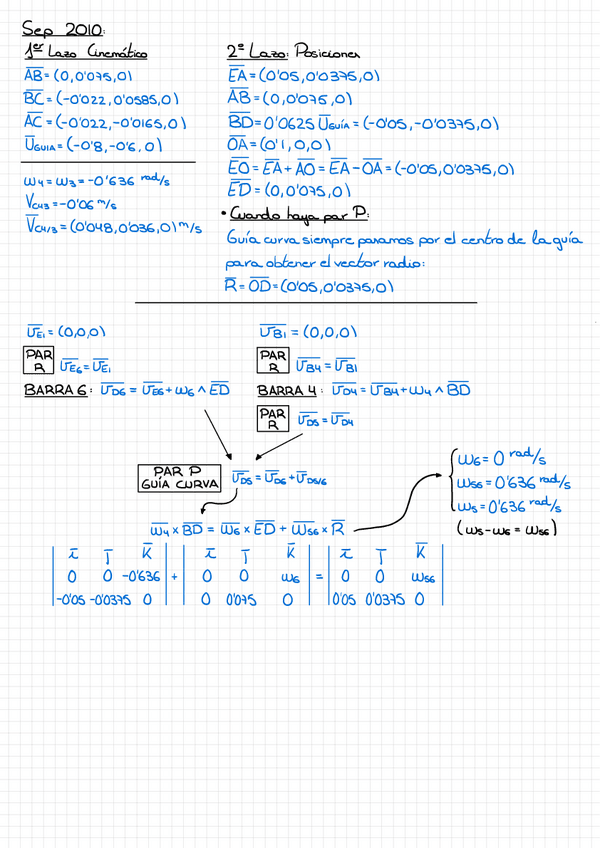 Sep 2010:
1er Lazo Cinemático
AB = (0,0'075,0)
BC = (-0'022,0'0585,0)
AC = (-0'022,-0'0165,0)
UGUIA = (-0'8,-0'6,0)
ω4 = ω3 = -0'636 rad/s
VC4/3 = -0'06 m/s
VC4/3 = (0'048,0'036,0) m/s
2º Lazo: Posiciones
EA = (0'05,0'0375,0)
AB = (0,0'075,0)
BD = 0'0625 UGUÍA = (-0'05,-0'0375,0)
OA = (0'1,0,0)
EO = EA + AO = EA - OA = (-0'05,0'0375,0)
ED = (0,0'075,0)
• Cuando haya par P:
Guía curva siempre pasamos por el centro de la guía
para obtener el vector radio:
R = OD = (0'05,0'0375,0)
UE1 = (0,0,0)
PAR R UE6 = UE1
BARRA 6: UD6 = UE6 + ω6 ∧ ED
UB1 = (0,0,0)
PAR R UB4 = UB1
BARRA 4: UD4 = UB4 + ω4 ∧ BD
PAR R UD5 = UD4
PAR P GUÍA CURVA UD5 = UD6 + UD5/6
ω4 × BD = ω6 × ED + ω56 × R
ω6 = 0 rad/s
ω56 = 0'636 rad/s
ω5 = 0'636 rad/s
(ω5 - ω6 = ω56)
| i j k | | i j k | | i j k |
| 0 0 -0'636 | + | 0 0 ω6 | = | 0 0 ω56 |
| -0'05 -0'0375 0 | | 0 0'075 0 | | 0'05 0'0375 0 |